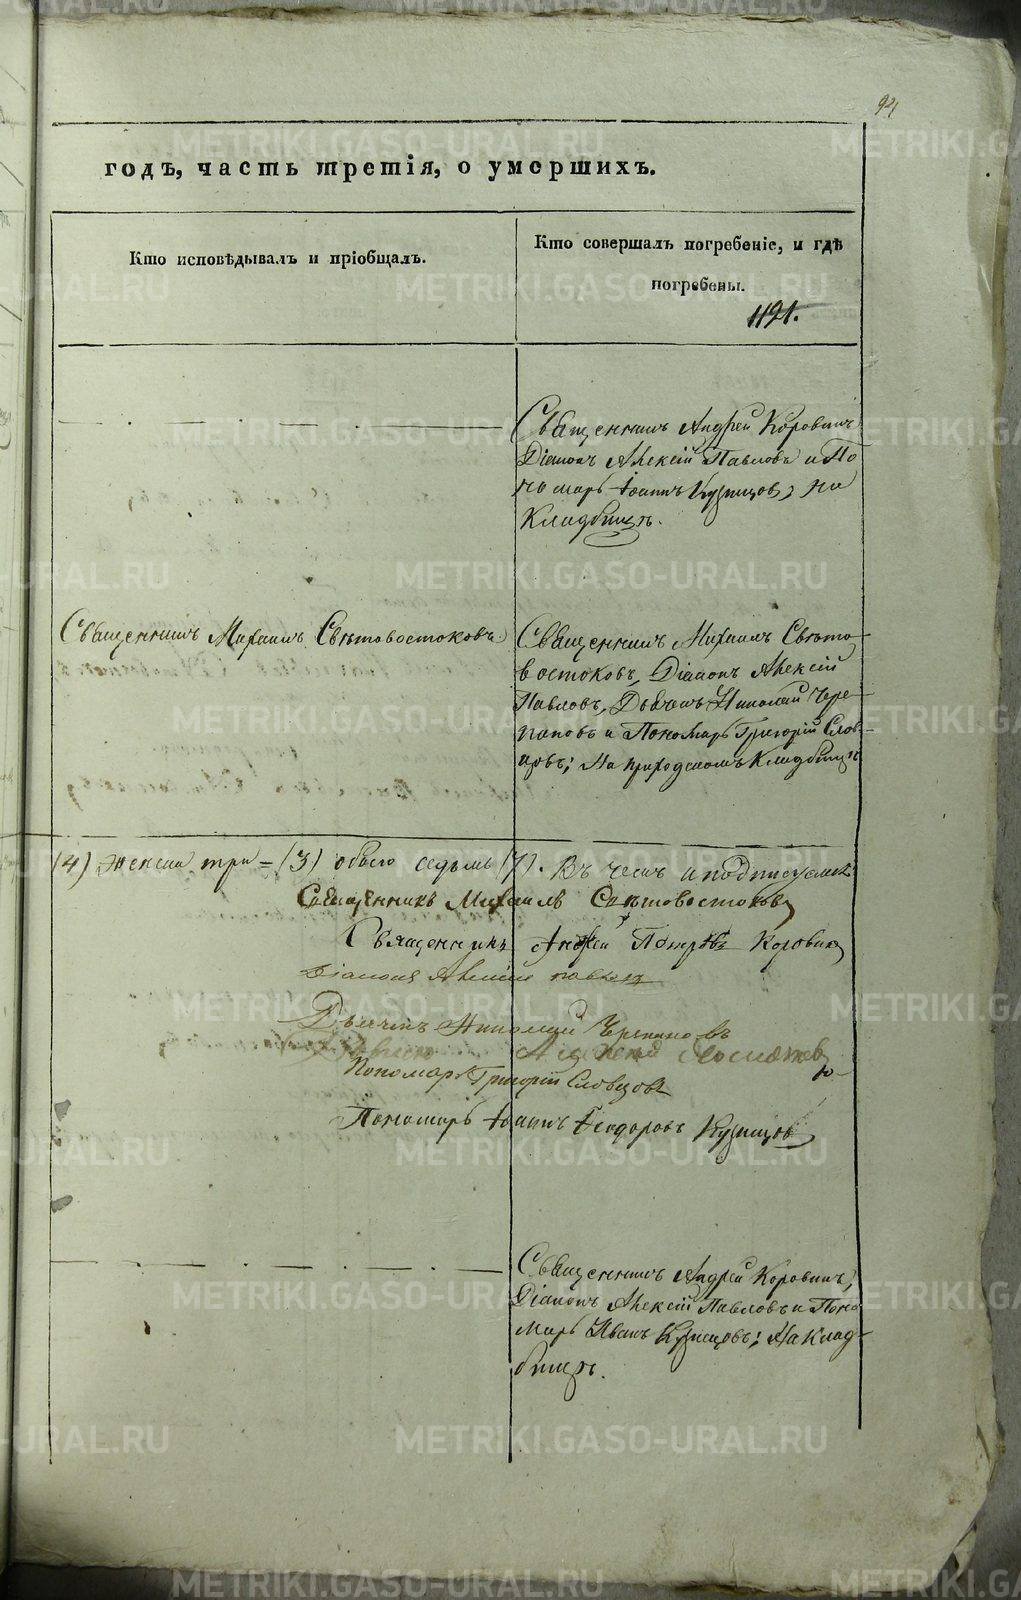 94
годъ, часть третія, о умершихъ.
Кто исповѣдывалъ и пріобщалъ.
Кто совершалъ погребеніе, и гдѣ
погребены.
1191.
Священникъ Андрей Коровинъ
Діаконъ Алексій Павловъ и По
номарь Іоаннъ Кузнцовъ, на
Кладбищѣ.
Священникъ Михаилъ Свѣтовостоковъ
Священникъ Михаилъ Свѣто-
востоковъ, Діаконъ Алексій
Павловъ, Дьячекъ Николай Чере-
пановъ и Пономарь Григорій Слов-
цовъ; на приходскомъ Кладбищѣ
(4) женска три = (3) обоего седьмъ (7). Въ чемъ и подписуемся:
Священникъ Михаилъ Свѣтовостоковъ
Священникъ Андрей Петровъ Коровинъ
Діаконъ Алексій Павловъ
Дьячекъ Николай Черепановъ
Пономарь Григорій Словцовъ
Пономарь Іоаннъ Феодоровъ Кузнцовъ
Священникъ Андрей Коровинъ,
Діаконъ Алексій Павловъ и Поно
марь Иванъ Кузнецовъ; на Клад-
бищѣ.
METRIKI.GASO-URAL.RU